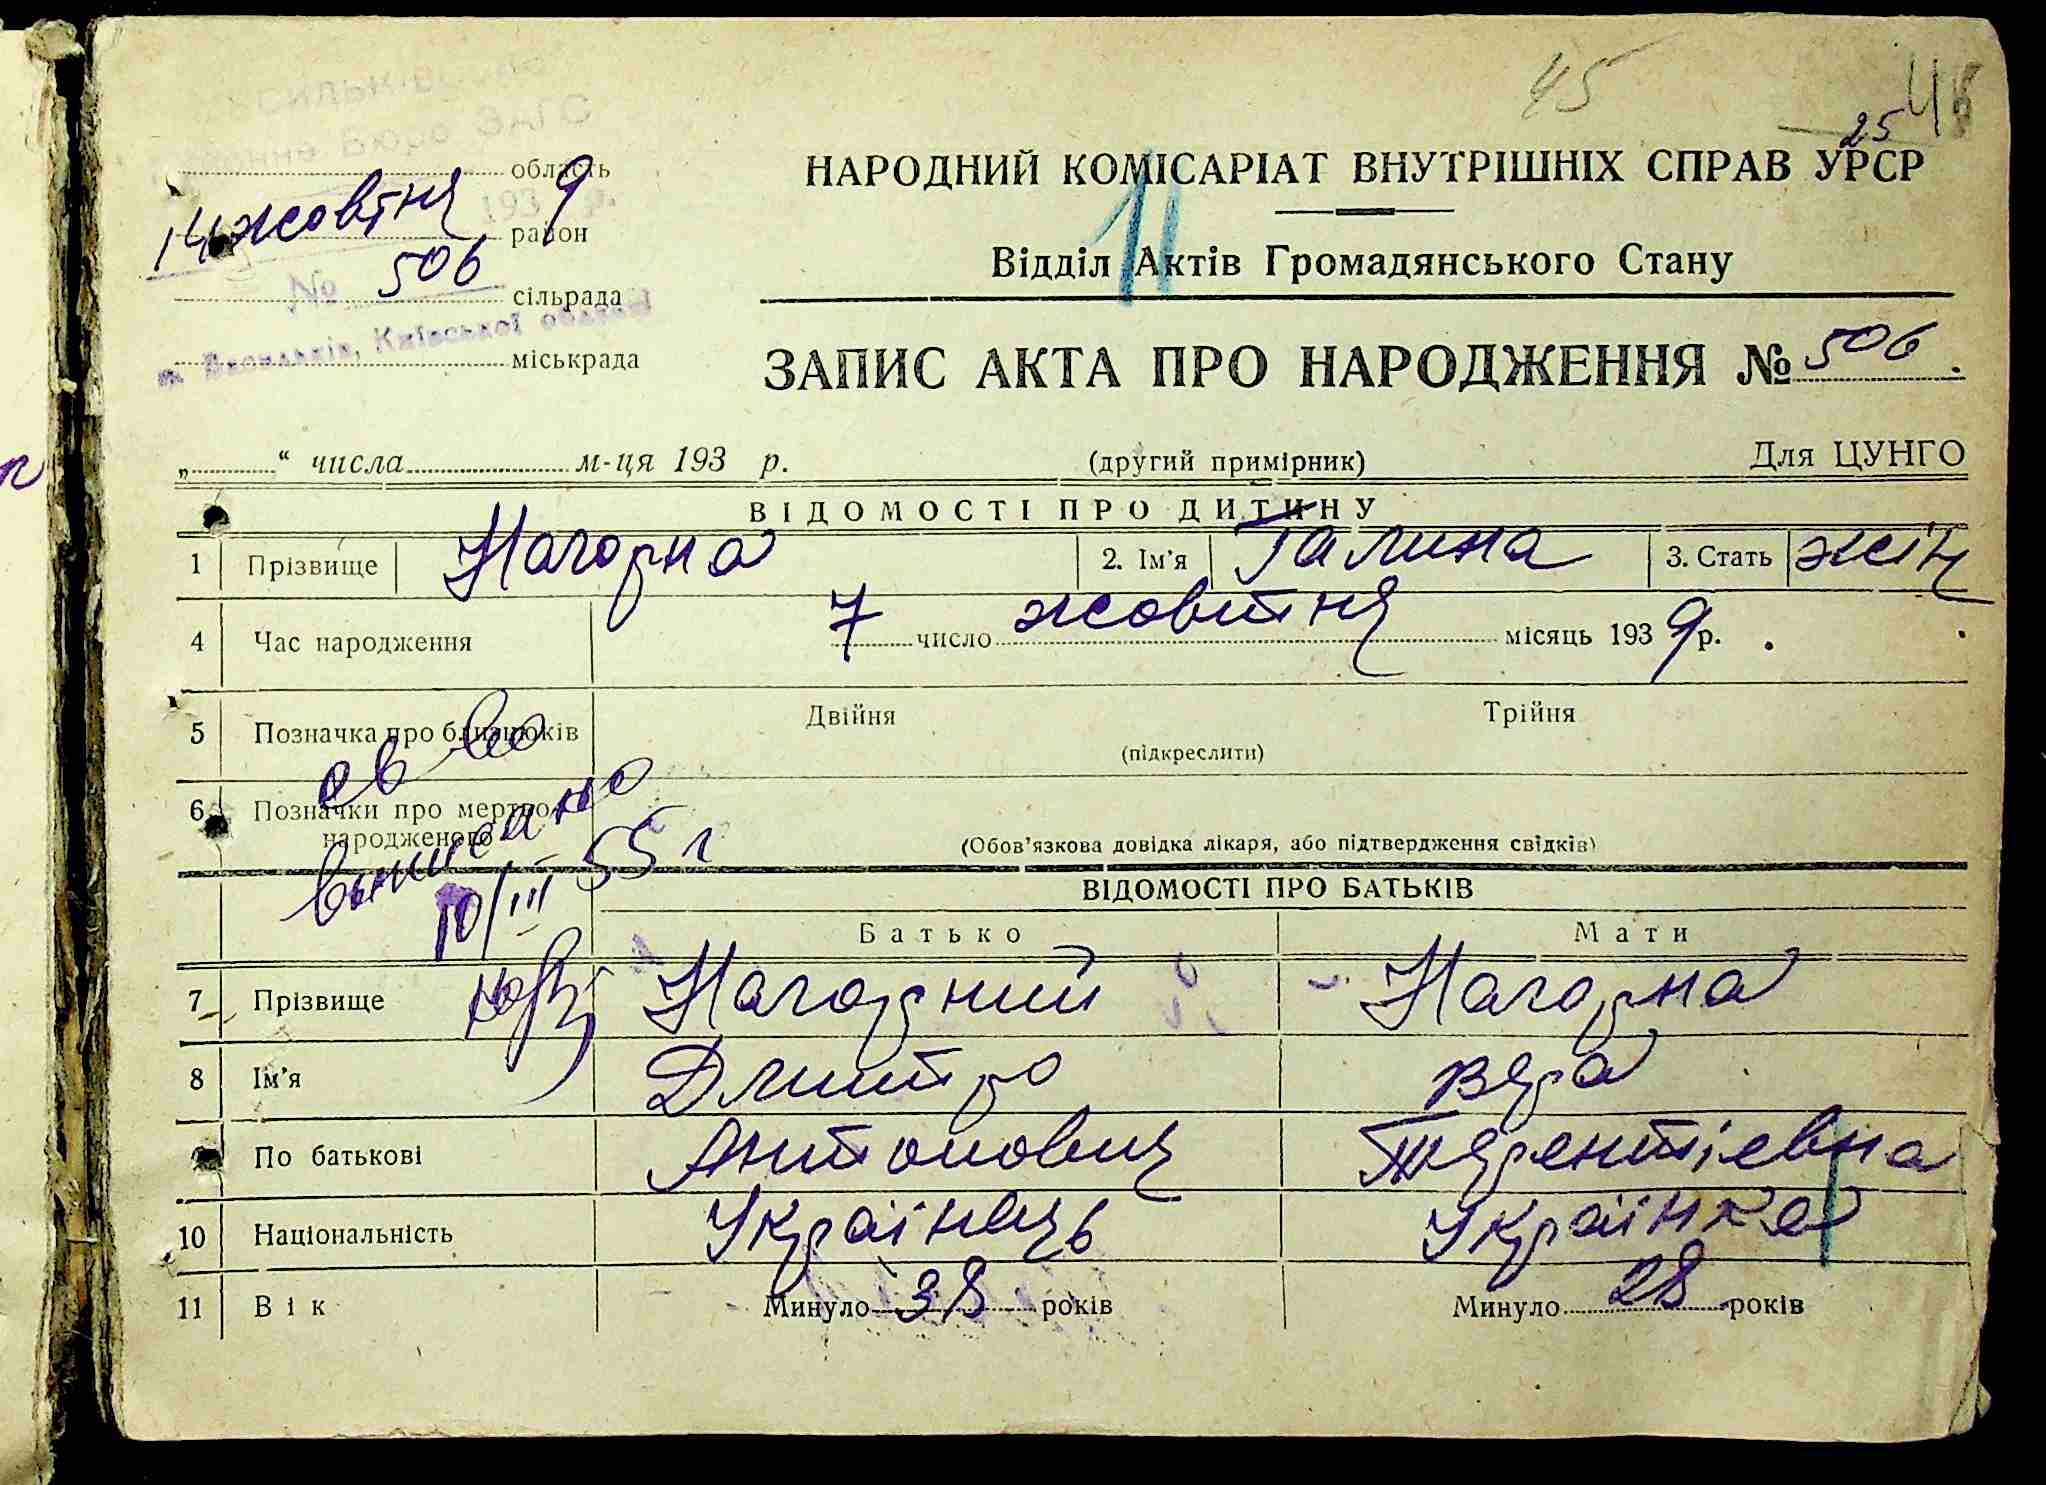 45
48
25
Васильківське
Районне Бюро ЗАГС
область
14 жовтня 1939 р.
район
№ 506
сільрада
м. Васильків, Київської області
міськрада
НАРОДНИЙ КОМІСАРІАТ ВНУТРІШНІХ СПРАВ УРСР
11
Відділ Актів Громадянського Стану
ЗАПИС АКТА ПРО НАРОДЖЕННЯ № 506.
„ “ числа м-ця 193 р. (другий примірник) Для ЦУНГО
ВІДОМОСТІ ПРО ДИТИНУ
1 Прізвище Нагорна 2. Ім'я Галина 3. Стать жін
4 Час народження 7 число жовтня місяць 1939 р.
5 Позначка про близнюків Двійня Трійня
(підкреслити)
6 Позначки про мертвонародженого
(Обов'язкова довідка лікаря, або підтвердження свідків)
св во
выписано
10/III-55 г
ВІДОМОСТІ ПРО БАТЬКІВ
Батько Мати
7 Прізвище Нагорний Нагорна
8 Ім'я Дмитро Вяра
9 По батькові Антонович Тярентіевна
10 Національність Українець Українка
11 Вік Минуло 38 років Минуло 28 років